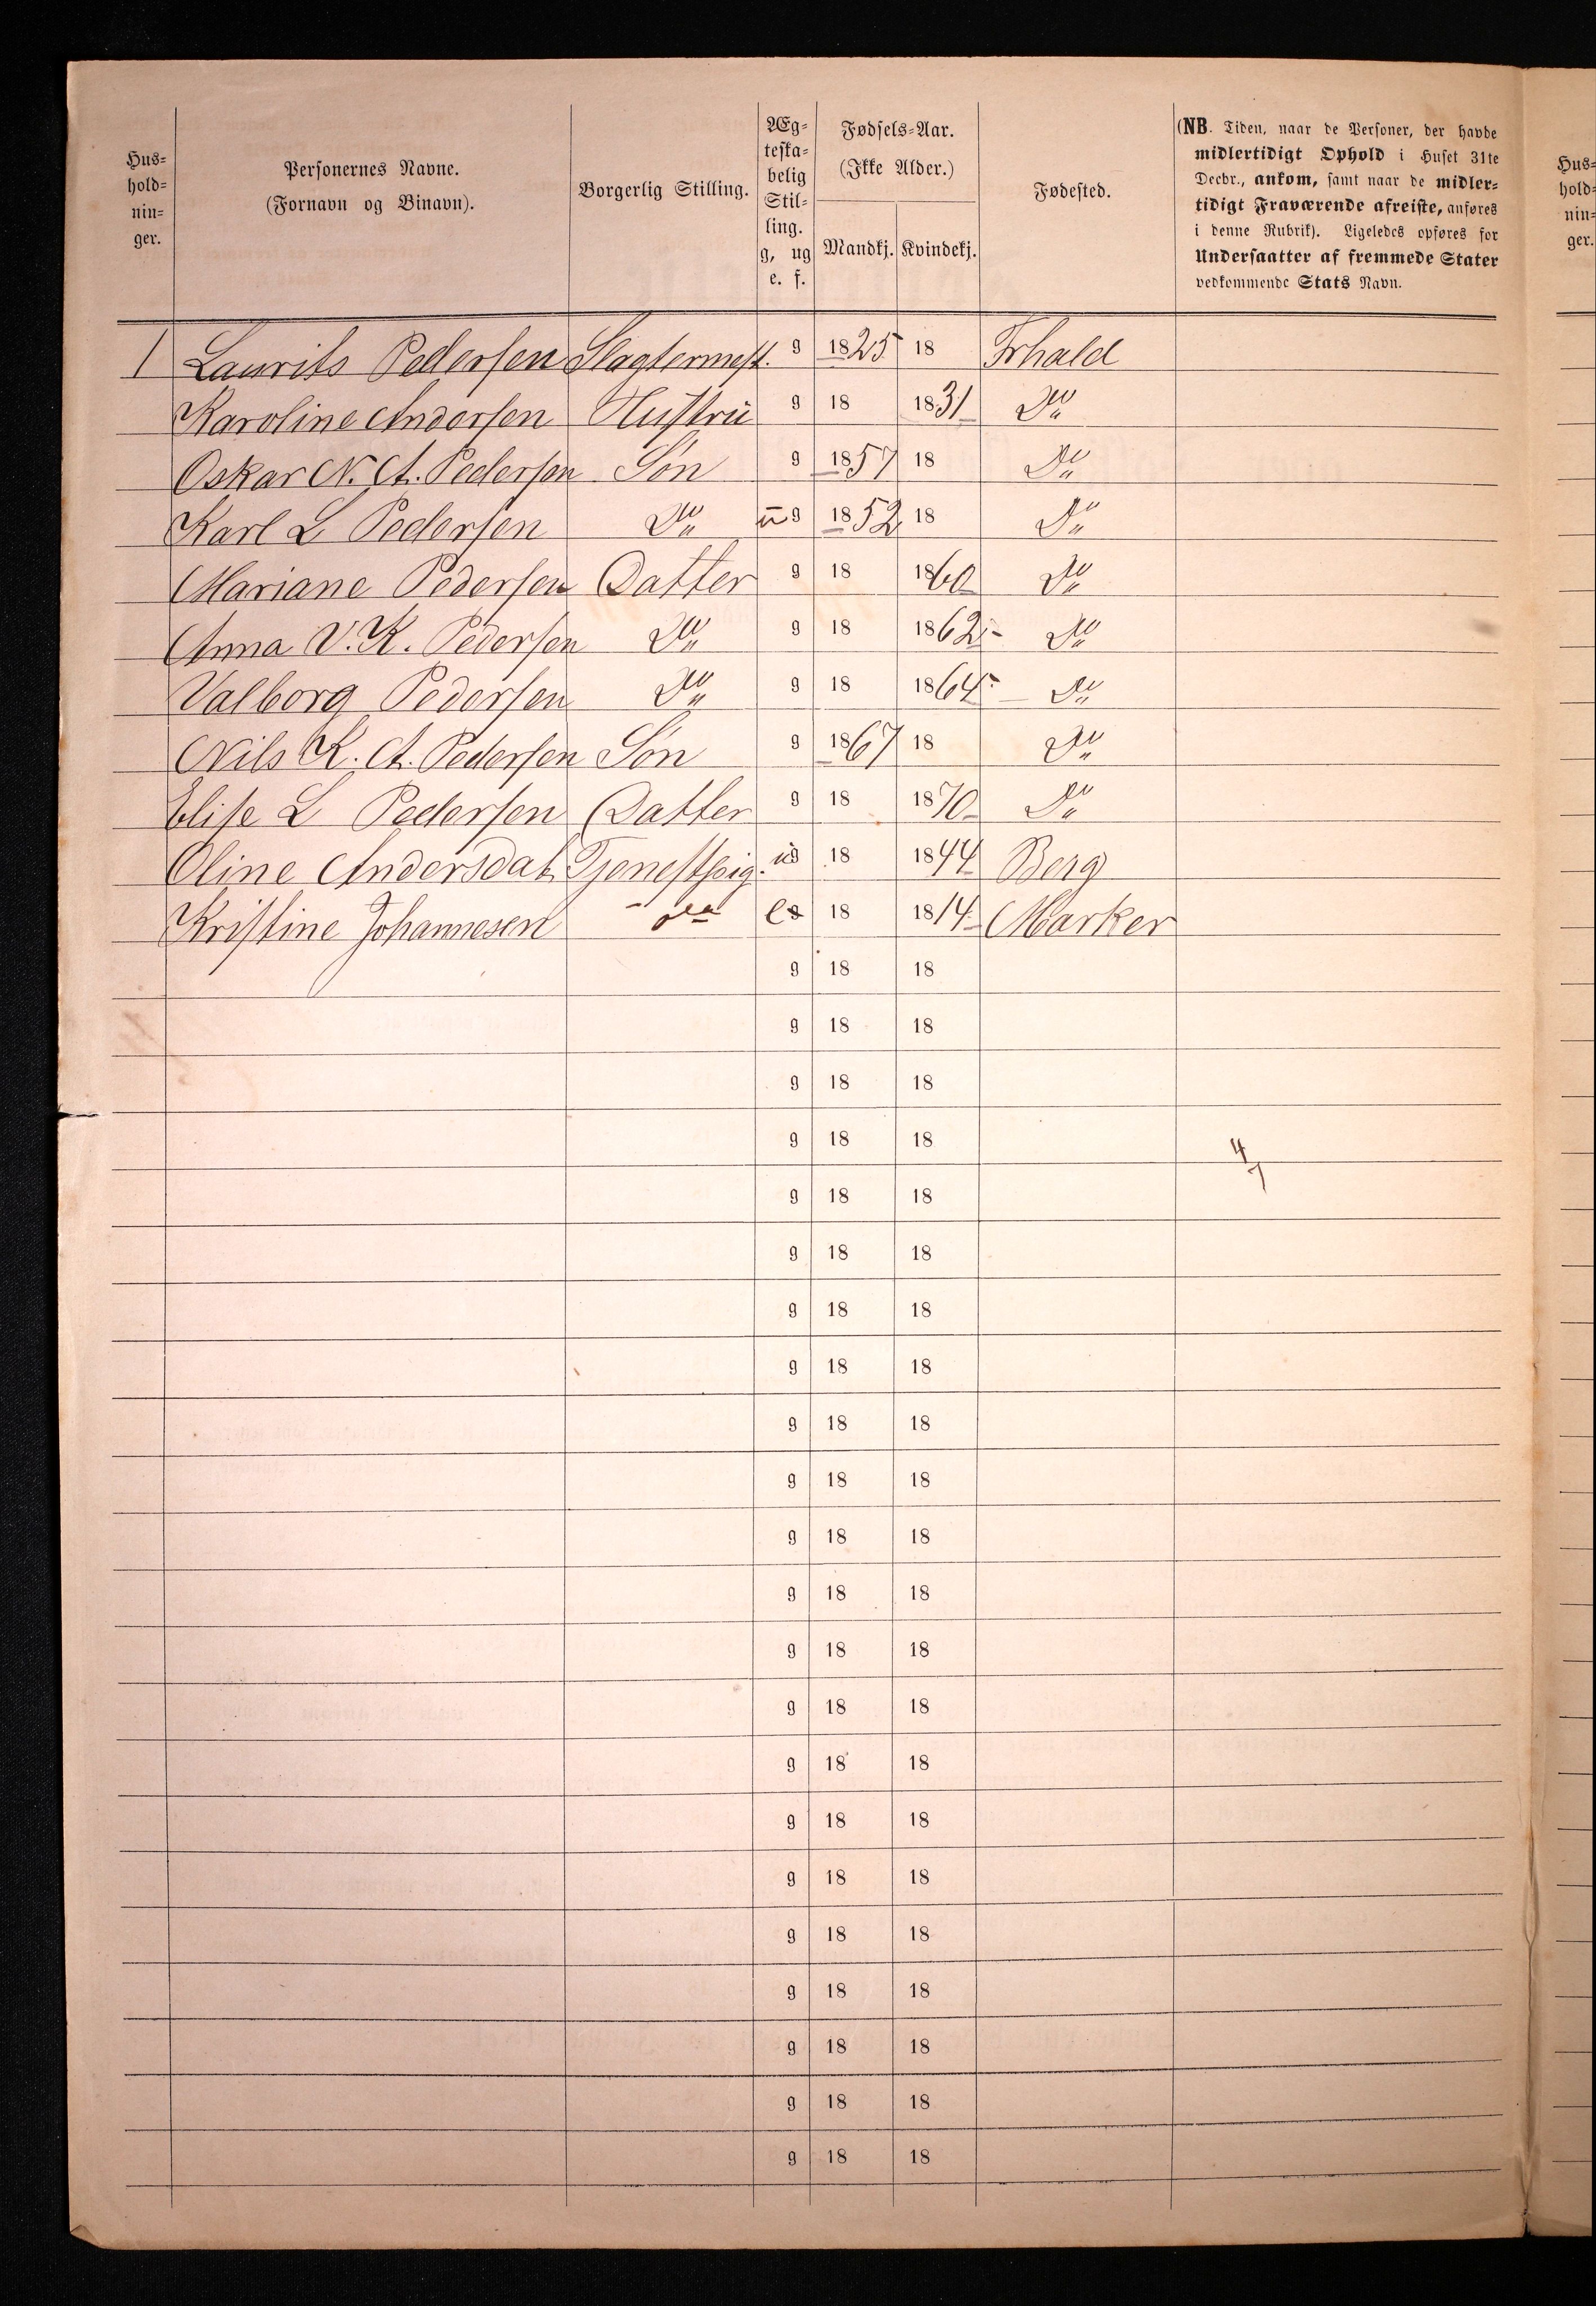 Hus=
hold=
nin=
ger.
Personernes Navne.
(Fornavn og Binavn).
Borgerlig Stilling.
Æg=
teska=
belig
Stil=
ling.
g, ug
e. f.
Fødsels=Aar.
(Ikke Alder.)
Mandkj. Kvindekj.
Fødested.
(NB. Tiden, naar de Personer, der havde
midlertidigt Ophold i Huset 31te
Decbr., ankom, samt naar de midler=
tidigt Fraværende afreiste, anføres
i denne Rubrik). Ligeledes opføres for
Undersaatter af fremmede Stater
vedkommende Stats Navn.
Hus=
hold=
nin=
ger.
1 Laurits Pedersen Slagtermest. g 1825 18 Frhald
Karoline Andersen Hustru g 18 1831 Do
Oskar N. A. Pedersen Søn g 1857 18 Do
Karl L Pedersen Do ug 1852 18 Do
Mariane Pedersen Datter g 18 1860 Do
Anna V. K. Pedersen Do g 18 1862 Do
Valborg Pedersen Do g 18 1864 Do
Nils K. A. Pedersen Søn g 1867 18 Do
Elise L Pedersen Datter g 18 1870 Do
Oline Andersdat Tjenestpig. ug 18 1844 Berg
Kristine Johannesen do e 18 1814 Marker
g 18 18
g 18 18
g 18 18
g 18 18
4
7
g 18 18
g 18 18
g 18 18
g 18 18
g 18 18
g 18 18
g 18 18
g 18 18
g 18 18
g 18 18
g 18 18
g 18 18
g 18 18
g 18 18
g 18 18
g 18 18
g 18 18
g 18 18